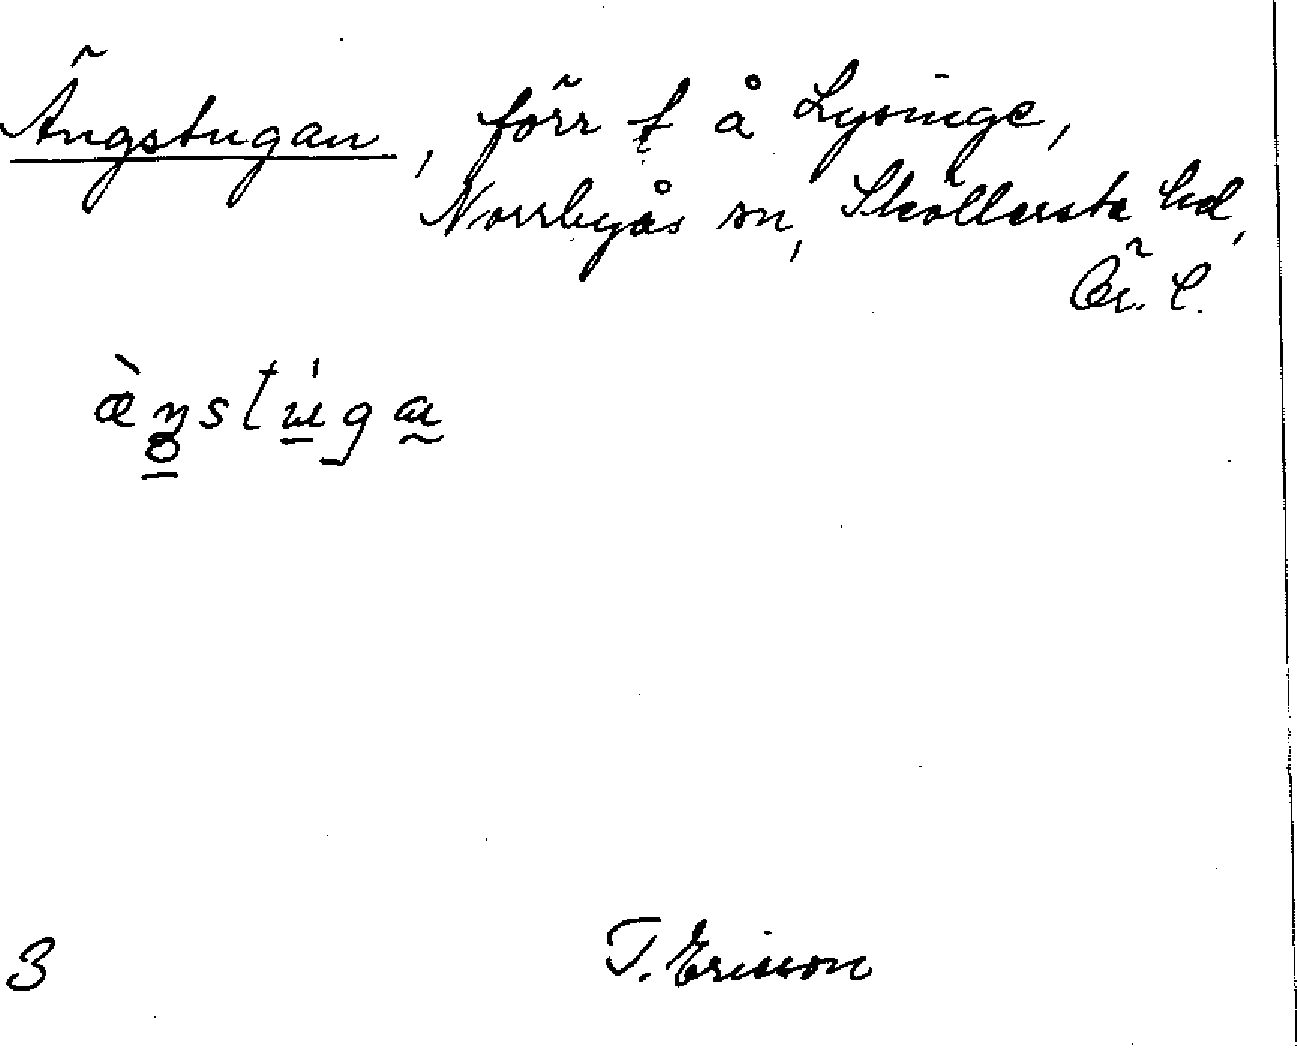 Ängstugan, förr t å Lysinge,
Norrbyås sn, Sköllersta hd,
Ör. l.
æ̀ŋstúga
3 T. Ericson